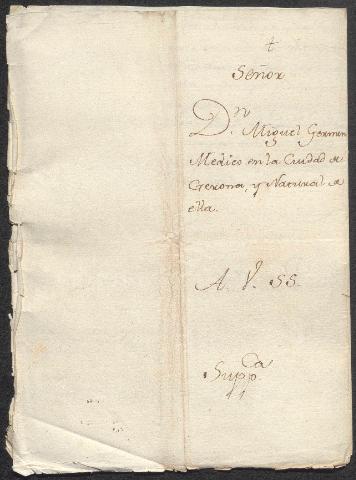 †
Señor
Dn. Miguel Germen
Medico en la Ciudad de
Gerona, y Natural de
ella.
A. V. SS.
Suppca.